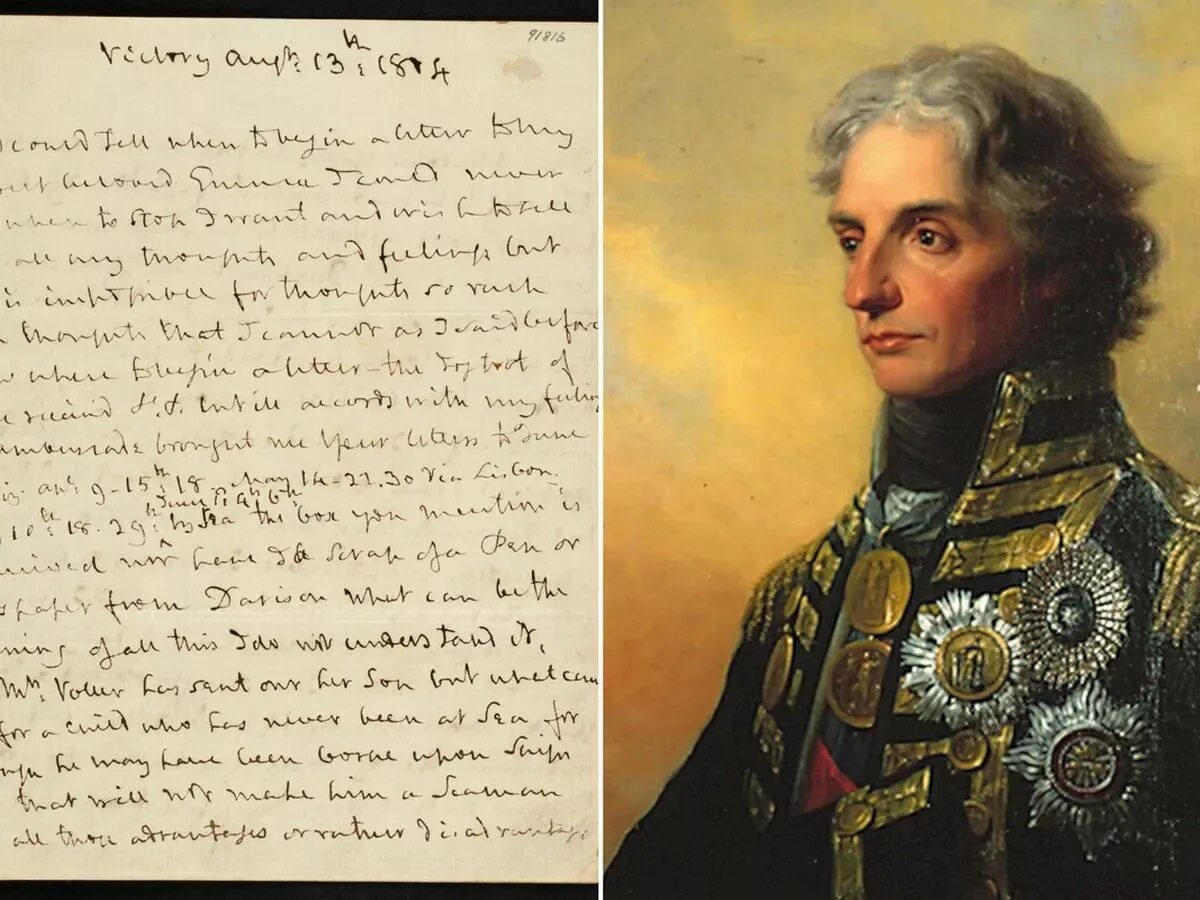 91816
Victory Augt: 13th: 1804
I could tell when to begin a letter to my
beloved Emma I could never
when to stop I want and wish to tell
all my thoughts and feelings but
is impossible for thoughts so rush
thoughts that I cannot as I said before
where to begin a letter - the
accords with my feelings
Ambuscade brought me your letters to June
9-15th 18 May 14-22.30 Via Lisbon
10th 18. 29th by Sea the box you mention is
nor have I a Scrap of a Pen or
from Davison what can be the
of all this I do not understand it,
has sent out her Son but what can
for a child who has never been at Sea for
he may have been borne upon Ships
that will not make him a Seaman
all those advantages or rather disadvantages